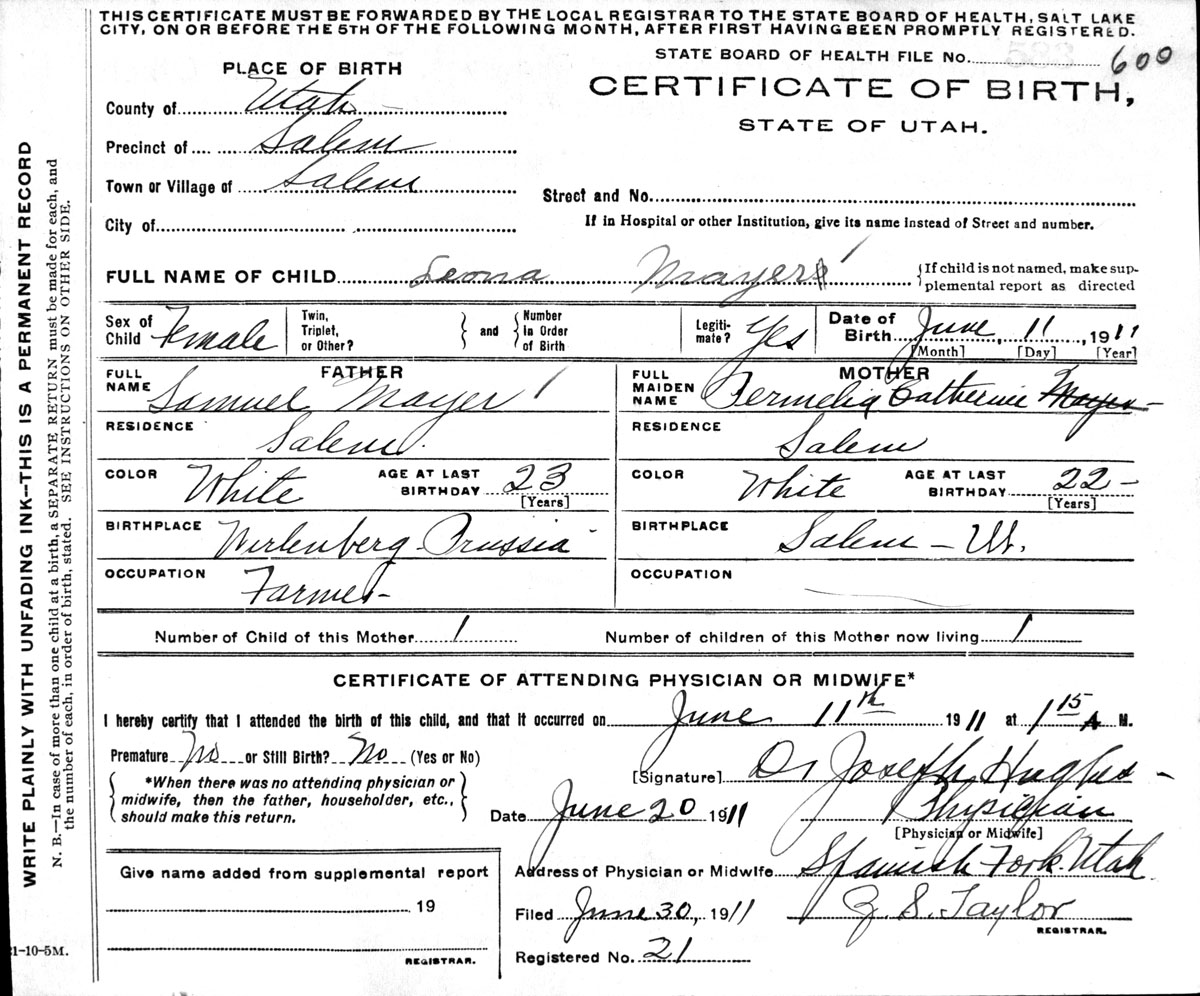 THIS CERTIFICATE MUST BE FORWARDED BY THE LOCAL REGISTRAR TO THE STATE BOARD OF HEALTH, SALT LAKE
CITY, ON OR BEFORE THE 5TH OF THE FOLLOWING MONTH, AFTER FIRST HAVING BEEN PROMPTLY REGISTERED.
STATE BOARD OF HEALTH FILE NO. 600
PLACE OF BIRTH
CERTIFICATE OF BIRTH,
STATE OF UTAH.
County of Utah
Precinct of Salem
Town or Village of Salem
Street and No.
City of
If in Hospital or other Institution, give its name instead of Street and number.
FULL NAME OF CHILD Leona Mayer
{If child is not named, make sup-
plemental report as directed
Sex of Child Female
Twin, Triplet, or Other? } and { Number in Order of Birth
Legiti-mate? Yes
Date of Birth June, 11, 1911
[Month] [Day] [Year]
FATHER
FULL NAME Samuel Mayer
RESIDENCE Salem
COLOR White AGE AT LAST BIRTHDAY 23 [Years]
BIRTHPLACE Wirtenberg Prussia
OCCUPATION Farmer
MOTHER
FULL MAIDEN NAME Permelia Catherine Mayer
RESIDENCE Salem
COLOR White AGE AT LAST BIRTHDAY 22 [Years]
BIRTHPLACE Salem - Ut.
OCCUPATION
Number of Child of this Mother 1 Number of children of this Mother now living 1
CERTIFICATE OF ATTENDING PHYSICIAN OR MIDWIFE*
I hereby certify that I attended the birth of this child, and that it occurred on June 11th 1911 at 1 15 A M.
Premature No or Still Birth? No (Yes or No)
{ *When there was no attending physician or
midwife, then the father, householder, etc.,
should make this return. }
[Signature] Dr Joseph Hughes
Date June 20 1911 Physician
[Physician or Midwife]
Address of Physician or Midwife Spanish Fork Utah
Filed June 30, 1911 Z. S. Taylor
REGISTRAR.
Registered No. 21
Give name added from supplemental report
19
REGISTRAR.
WRITE PLAINLY WITH UNFADING INK--THIS IS A PERMANENT RECORD
N. B.—In case of more than one child at birth, a SEPARATE RETURN must be made for each, and
the number of each, in order of birth, stated. SEE INSTRUCTIONS ON OTHER SIDE.
1-10-5M.